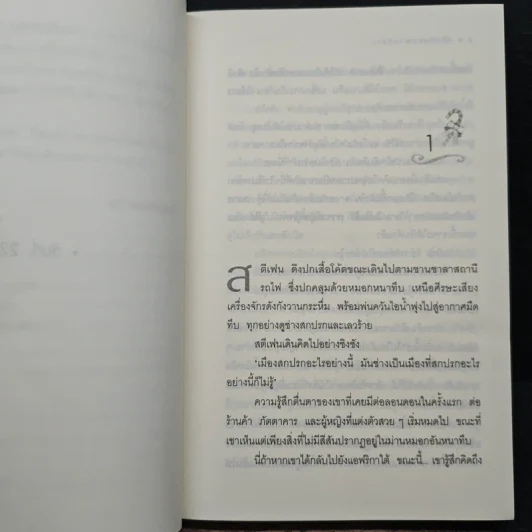 1
สตีเฟน ดึงปกเสื้อโค้ตขณะเดินไปตามชานชาลาสถานี
รถไฟ ซึ่งปกคลุมด้วยหมอกหนาทึบ เหนือศีรษะเสียง
เครื่องจักรดังกังวานกระหึ่ม พร้อมพ่นควันไอน้ำพุ่งไปสู่อากาศมืด
ทึบ ทุกอย่างดูช่างสกปรกและเลวร้าย
สตีเฟนเดินคิดไปอย่างชิงชัง
'เมืองสกปรกอะไรอย่างนี้ มันช่างเป็นเมืองที่สกปรกอะไร
อย่างนี้ก็ไม่รู้'
ความรู้สึกตื่นตาของเขาที่เคยมีต่อลอนดอนในครั้งแรก ต่อ
ร้านค้า ภัตตาคาร และผู้หญิงที่แต่งตัวสวย ๆ เริ่มหมดไป ขณะที่
เขาเห็นแต่เพียงสิ่งที่ไม่มีสีสันปรากฏอยู่ในม่านหมอกอันหนาทึบ
นี่ถ้าหากเขาได้กลับไปยังแอฟริกาได้ ขณะนี้ เขารู้สึกคิดถึง